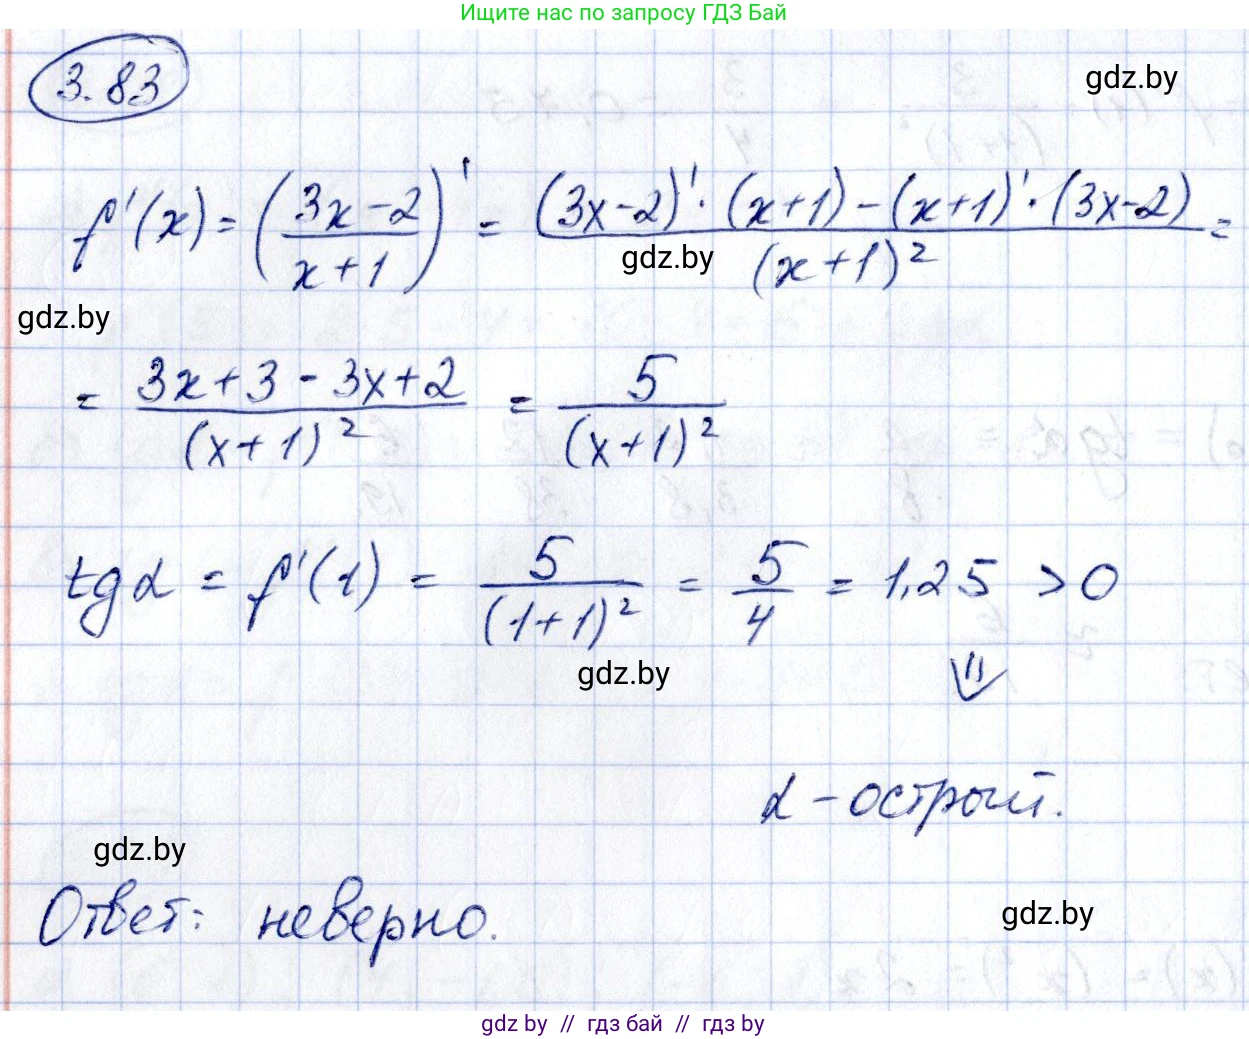 Ищите нас по запросу ГДЗ Бай
3.83
gdz.by
f'(x) = ((3x-2)/(x+1))' = ((3x-2)'·(x+1)-(x+1)'·(3x-2))/(x+1)² =
gdz.by
gdz.by
= (3x+3-3x+2)/(x+1)² = 5/(x+1)²
tgα = f'(1) = 5/(1+1)² = 5/4 = 1,25 > 0
gdz.by
⇓
α - острый.
gdz.by
Ответ: неверно.
gdz.by
gdz by // гдз бай // гдз by